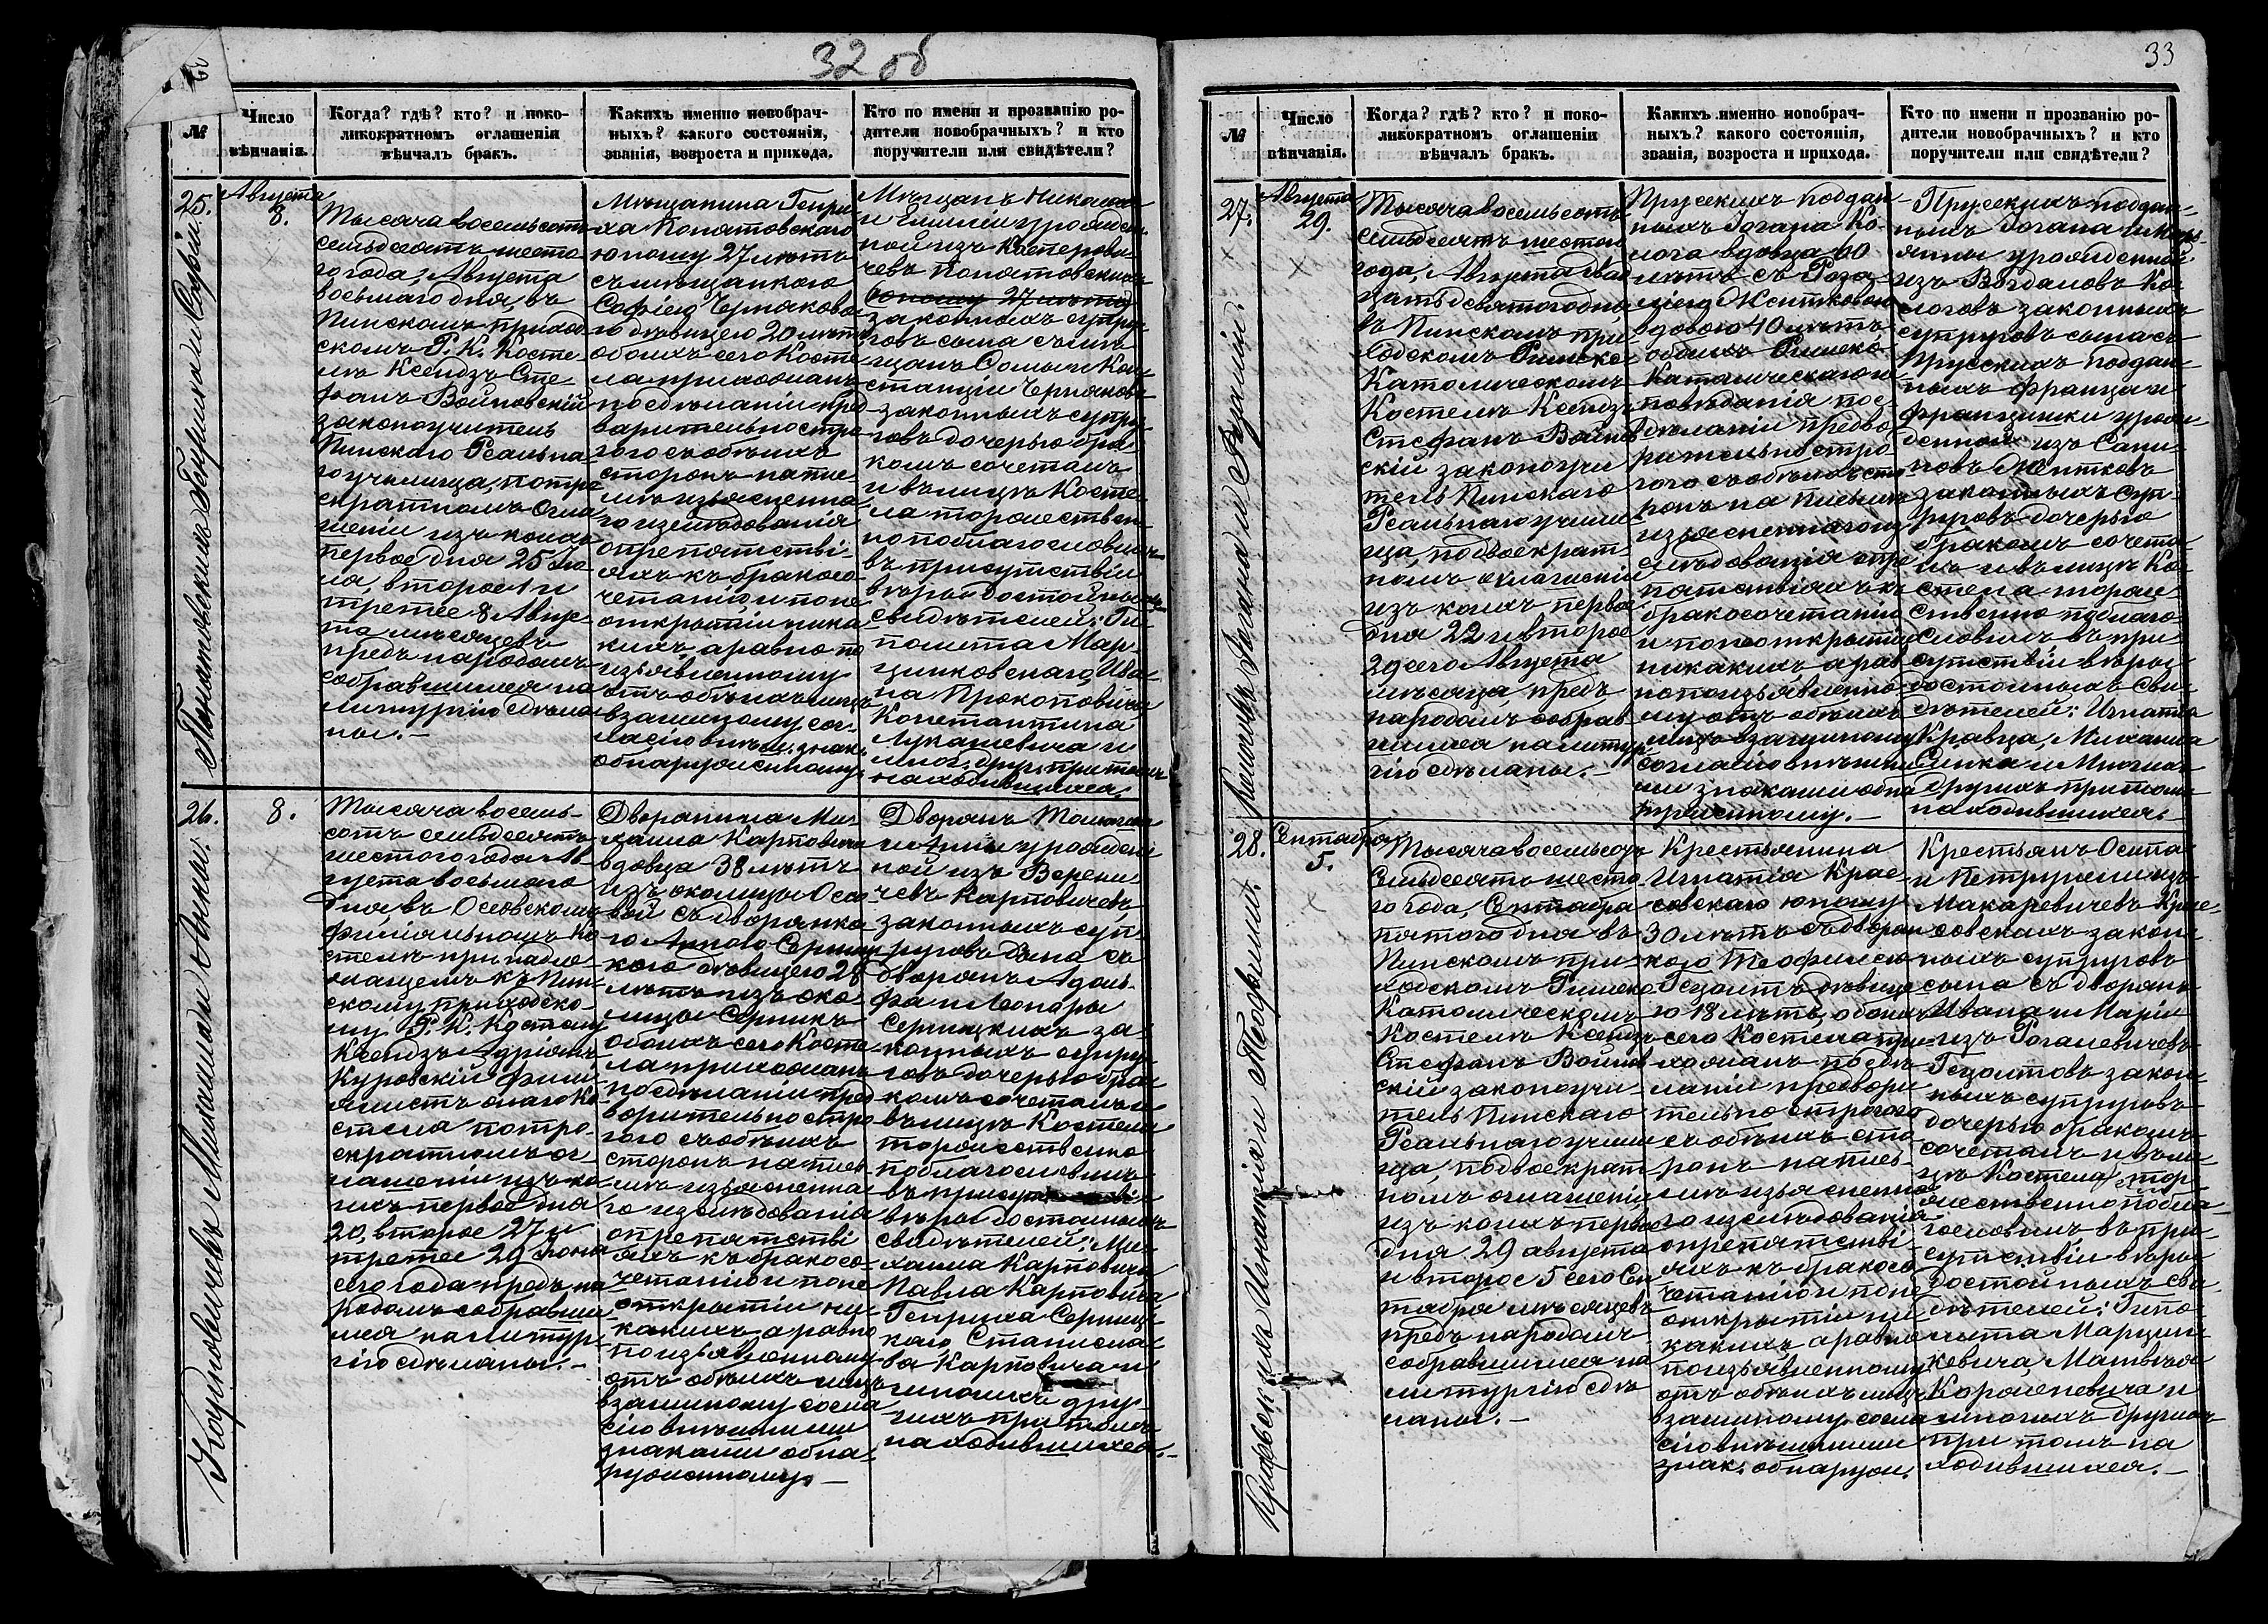 32 об
№
Число
вѣнчанія.
Когда? гдѣ? кто? и поко-
ликократномъ оглашеніи
вѣнчалъ бракъ.
Какихъ именно новобрач-
ныхъ? какого состоянія,
званія, возроста и прихода.
Кто по имени и прозванію ро-
дители новобрачныхъ? и кто
поручители или свидѣтели?
25.
Августа
8.
Понятовскихъ Генриха и Софіи.
Тысяча восемьсотъ
семьдесятъ шесто
го года, Августа
восьмаго дня, въ
Пинскомъ приход
скомъ Р. К. Косте
лѣ Ксендзъ Сте
фанъ Войновскій
законоучитель
Пинскаго Реальна
го училища, по трех
кратномъ огла
шеніи изъ коихъ
первое дня 25 Iю
ля, второе 1 и
третее 8 Авгус
та мѣсяцевъ
предъ народомъ
собравшимся на
литургію сдѣла
ны.-
Мѣщанина Генри
ха Понятовскаго
юношу 27 лѣтъ
съ мѣщанкою
Софіею Черняково
ю дѣвицею 20 лѣтъ
обоихъ сего Косте
ла прихожанъ
по сдѣланіи пред
варительно стро
гого съ обѣихъ
сторонъ на пись
мѣ изъясненна
го изслѣдованія
о препятстві
яхъ къ бракосо
четанію и по не
открытіи ника
кихъ, а равно по
изъявленному
отъ обѣихъ лицъ
взаимному сог
ласію внѣш. знак.
обнаруженному
Мѣщанъ Никалая
и Емиліи урожден
ной изъ Касперови
чевъ Понятовскихъ
юношу 27 лѣтъ
законныхъ супру
говъ сына съ мѣ
щанъ Сомы и Кон
станціи Черняковъ
законныхъ супру
говъ дочерью бра
комъ сочеталъ
и въ лицѣ Косте
ла торжествен
но поблагословилъ
въ присутствіи
вѣры достойныхъ
свидѣтелей: Ги
полита Мар
цинковскаго, Ива
на Прокоповича
Константина
Лукашевича и
мног. друг. при томъ
находившихся.
26.
8.
Карповичевъ Михаила и Анны.
Тысяча восемь-
сотъ семьдесятъ
шестого года Ав
густа восьмаго
дня, въ Осовскомъ
филіальномъ Ко
стелѣ принадле
жащемъ къ Пин-
скому приходско-
му Р. К. Костелу
Ксендзъ Адріанъ
Куровскій фили
ялистъ онаго Ко
стела по тро
екратномъ ог-
лашеніи изъ ко
ихъ первое дня
20, второе 27 и
третее 29 Iюня
сего года предъ на
родомъ собравши
мся на литур-
гію сдѣланы.-
Дворянина Ми
хаила Карповича
вдовца 38 лѣтъ
изъ околицы Осо
вой съ дворянко
ю Анною Серниц
кою дѣвицею 28
лѣтъ изъ око
лицы Серникъ
обоихъ сего Косте
ла прихожанъ
по сдѣланіи пред
ворительно стро
гого съ обѣихъ
сторонъ на пись
мѣ изъясненна
го изслѣдованія
о препятстві
яхъ къ бракосо-
четанію и по не
открытіи ни
какихъ, а равно
по изъявленному
отъ обѣихъ лицъ
взаимному согла
сію внѣшними
знаками обна-
руженному.-
Дворянъ
и Анны урожден
ной изъ Верени
чевъ Карповичевъ,
законныхъ суп-
руговъ сына съ
дворянъ Адоль
фа и Леоноры
Серницкихъ за-
конныхъ супру
говъ дочерью бра
комъ сочеталъ и
въ лицѣ Костела
торжественно
поблагословилъ
въ присутствіи
вѣры достойныхъ
свидѣтелей: Ми
хаила Карповича
Павла Карповича,
Генриха Серниц
каго, Станисла
ва Карповича и
многихъ дру-
гихъ при томъ
находившихся.-
33
№
Число
вѣнчанія.
Когда? гдѣ? кто? и поко-
ликократномъ оглашеніи
вѣнчалъ бракъ.
Какихъ именно новобрач-
ныхъ? какого состоянія,
званія, возроста и прихода.
Кто по имени и прозванію ро-
дители новобрачныхъ? и кто
поручители или свидѣтели?
27.
Августа
29.
Iогана и Розаліи.
Тысяча восемьсотъ
семьдесятъ шестого
года, Августа двад
цать девятого дня
въ Пинскомъ при
ходскомъ Римско-
Католическомъ
Костелѣ Ксендзъ
Стефанъ Войнов
скій законоучи
тель Пинскаго
Реальнаго учили
ща, по двоекрат-
номъ оглашеніи
изъ коихъ первое
дня 22 и второе
29 сего Августа
мѣсяца, предъ
народомъ собрав
шимся на литур
гію сдѣланы.-
Прусскихъ поддан-
ныхъ Iогана Ко-
лога вдовца 60
лѣтъ съ Роза-
ліею
вдовою 40 лѣтъ
обоихъ Римско-
Католическаго ис
повѣданія пос-
дѣланіи предва
рительно стро-
гого съ обѣихъ сто
ронъ на письмѣ
изъясненного из
слѣдованія о пре
пятствіяхъ къ
бракосочетанію
и по не открытіи
никакихъ, а рав
но по изъявленно-
му отъ обѣихъ
лицъ взаимному
согласію внѣшни
ми знаками обна
руженному.-
Прусскихъ поддан-
ныхъ Iогана и Мари-
янны урожденной
изъ Богдановъ Ко-
логовъ законныхъ
супруговъ сына съ
Прусскихъ поддан-
ныхъ Франца и
Францишки урож
денной изъ
законныхъ суп
руговъ дочерью
бракомъ сочета-
лъ и въ лицѣ Ко-
стела торже
ственно поблаго
словилъ въ при
сутствіи вѣры
достойныхъ сви-
дѣтелей: Игнатія
Кравца, Михаила
и Многихъ
другихъ при томъ
находившихся.
28.
Сентября
5.
Красовскихъ Игнатія и Теофиліи.
Тысяча восемьсотъ
семьдесятъ шесто
го года, Сентября
пятого дня въ
Пинскомъ при-
ходскомъ Римско
Католическомъ
Костелѣ Ксендзъ
Стефанъ Войнов
скій законоучи
тель Пинскаго
Реальнаго учили
ща, по двоекрат
номъ оглашеніи,
изъ коихъ первое
дня 29 августа
и второе 5 сего Сен
тября мѣсяцевъ
предъ народомъ
собравшимся на
литургію сдѣ
ланы.-
Крестьянина
Игнатія Крас-
совскаго юношу
30 лѣтъ съ дворян
кою Теофилею
Гезоитъ дѣвице
ю 18 лѣтъ, обоихъ
сего Костела при-
хожанъ по сдѣ
ланіи предвари
тельно строгого
съ обѣихъ сто
ронъ на пись-
мѣ изъясненна
го изслѣдованія
о препятстві-
яхъ къ бракосо
четанію и по не
открытіи ни
какихъ, аравно
по изъявленному
отъ обѣихъ лицъ
взаимному согла
сію внѣшними
знак. обнаруж.
Крестьянъ Осипа
и Петрунели изъ
Макаревичевъ Крас-
совскихъ закон
ныхъ супруговъ
сына съ дворянъ
Ивана и Маріи
изъ Роганевичевъ
Гезоитовъ закон
ныхъ супруговъ
дочерью бракомъ
сочеталъ и въ ли
цѣ Костела тор
жественно побла
гословилъ, въ при-
сутствіи вѣры
достойныхъ сви
дѣтелей: Гипо-
лита Марцин-
кевича, Матвѣя
Короленевича и
многихъ другихъ
при томъ на
ходившихся.-